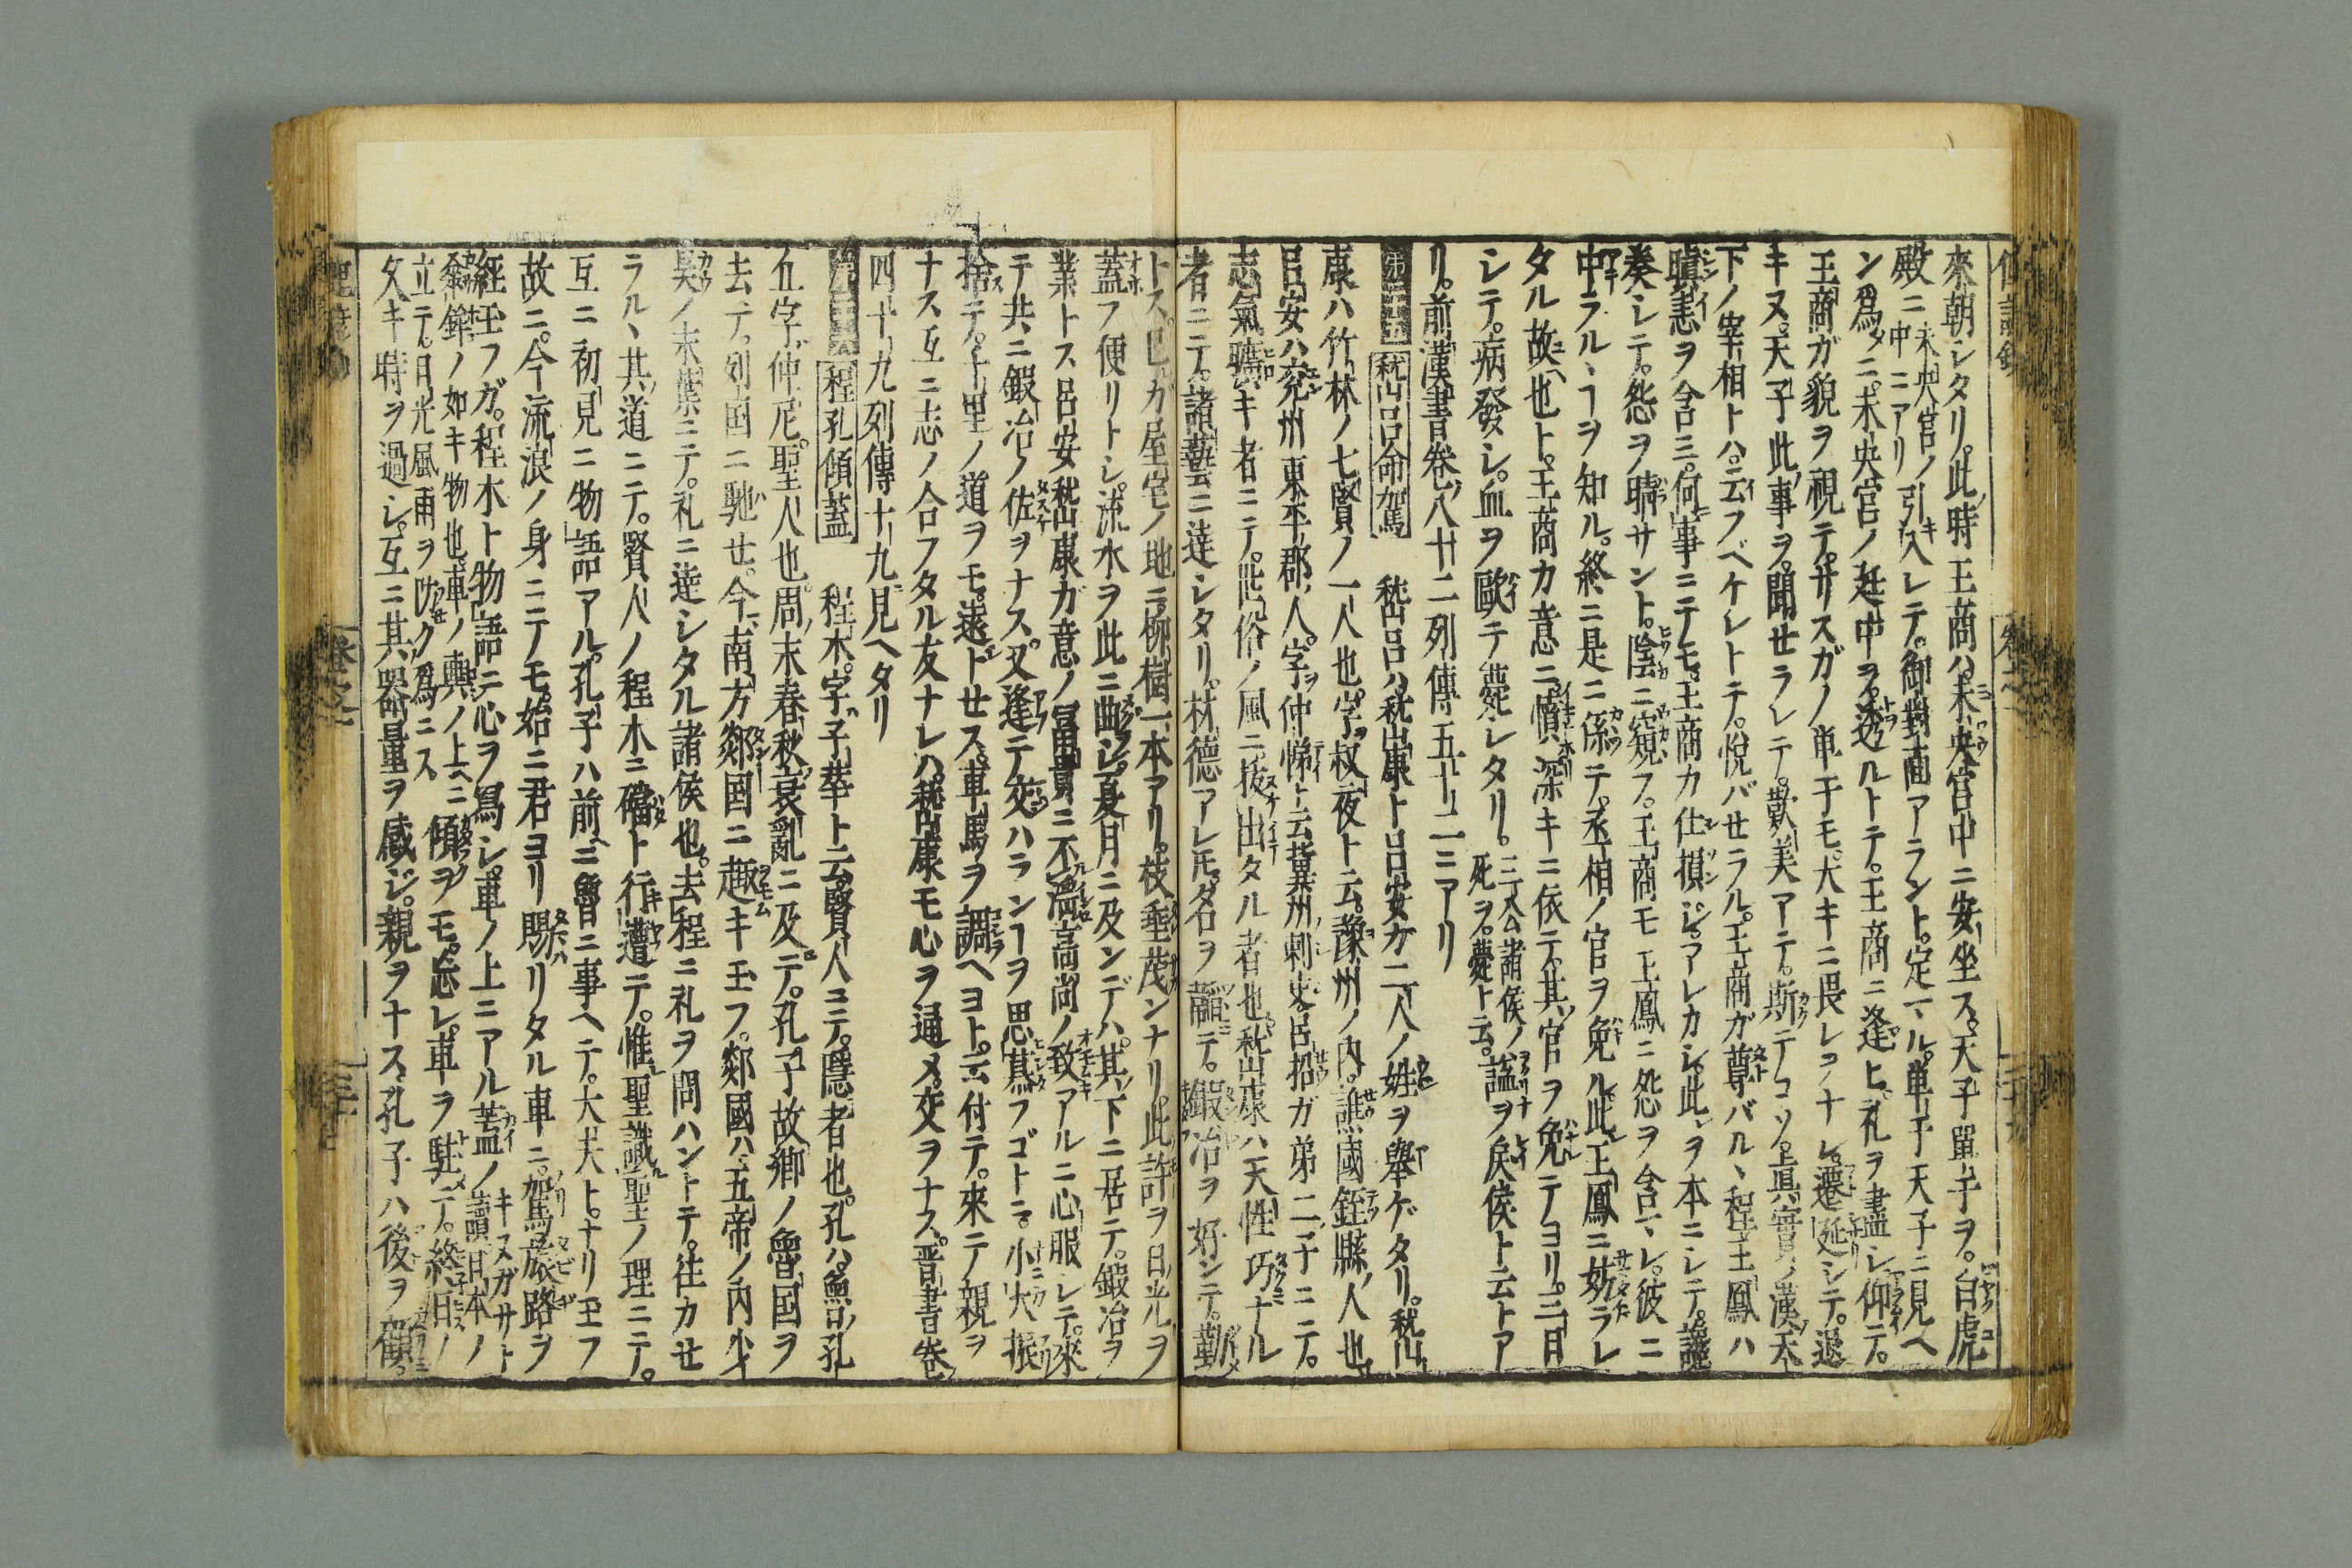 來朝シタリ。此時王商ハ。未央宮中ニ安坐ス。天子單于ヲ。白虎
殿ニ未央宮ノ中ニアリ引入レテ。御對面アラント。定マル。單于天子ニ見ヘ
ン爲メニ。未央宮ノ廷中ヲ。透ルトテ。王商ニ逢ヒ。礼ヲ盡シ仰テ。
王商ガ貌ヲ視テ。サスガノ單于モ。大キニ畏レヲナシ。遷延シテ。退
キヌ。天子此事ヲ。聞せラレテ。歎美アテ。斯テコソ。眞實ノ漢天
下ノ宰相トハ。云フベケレトテ。悅バセラル。王商ガ尊バルヽ程王鳳ハ
瞋恚ヲ含ミ。何事ニテモ。王商カ仕損ジアレカシ。此ヲ本ニシテ。讒
奏シテ。怨ヲ晴サント。陰ニ窺フ。王商モ王鳳ニ怨ヲ含マレ。彼ニ
中ラルヽヿヲ知ル。終ニ是ニ係テ。丞相ノ官ヲ免ル。此王鳳ニ妨ラレ
タル故也ト。王商カ意ニ憤深キニ依テ。其官ヲ免テヨリ。三日
シテ。病發シ。血ヲ歐テ薨シタリ。三公諸侯ノ死ヲ。薨ト云。謚ヲ戾侯ト云トア
リ。前漢書卷八十二列傳五十二ニアリ
第三十五 嵇呂命駕 嵇呂ハ嵇康ト呂安カ二人ノ姓ヲ擧ゲタリ。嵇
康ハ竹林ノ七賢ノ一人也。字叔夜ト云。豫州ノ内。譙國銍縣ノ人也
呂安ハ兖州東平郡ノ人。字ヲ仲悌ト云冀州ノ刺史呂招ガ弟二子ニテ。
志氣曠キ者ニテ。世俗ノ風ニ拔出タル者也嵇康ハ天性巧ナル
者ニテ。諸藝ニ達シタリ。材德アレ𪜈。名ヲ韜テ。鍛冶ヲ好ンテ。勤
トス。己カ屋宅ノ地ニ柳樹一本アリ。枝垂茂ンナリ。此許ヲ日光ヲ
蓋フ便リトシ。流水ヲ此ニ曲シ。夏月ニ及ンデハ。其下ニ居テ。鍛冶ヲ
業トス呂安嵇康ガ意ノ冨貴ニ不滯高尚ノ致アルニ心服レテ。來
テ共ニ鍛冶ノ佐ヲナス。又逢テ交ハランヿヲ思慕フゴトニ。小大振
捨テ。千里ノ道ヲモ。遠トせス。車馬ヲ調ヘヨト。云付テ。來テ親ヲ
ナス互ニ志ノ合フタル友ナレハ。嵇康モ心ヲ通メ。交ヲナス。晋書卷
四十九列傳十九見ヘタリ
第三十六 程孔傾蓋 程木。字子華ト云。賢人ニテ。隱者也。孔ハ魯ノ孔
丘字仲尼。聖人也。周末春秋衰亂ニ及テ。孔子故鄕ノ魯国ヲ
去テ。列国ニ馳せ。今南方郯国ニ趣キ玉フ。郯國ハ。五帝ノ内少
昊ノ末葉ニテ。礼ニ達シタル諸侯也。去程ニ礼ヲ問ハントテ。往カせ
ラルヽ其道ニテ。賢人ノ程木ニ礑ト行遭テ。惟聖識聖ノ理ニテ。
互ニ初見ニ物語アル。孔子ハ前ニ魯ニ事ヘテ。大夫ト。ナリ玉フ
故ニ。今流浪ノ身ニテモ。始ニ君ヨリ賜リタル車ニ。駕旅路ヲ
經玉フガ。程木ト物語ニ心ヲ爲シ。車ノ上ニアル蓋ノキヌガサト讀日本ノ
傘鉾ノ如キ物也。車ノ輿ノ上ニ立テ。日光風雨ヲ防ク爲ニス傾ヲモ。忘レ。車ヲ駐テ。終日ノ
久キ時ヲ過シ。互ニ其器量ヲ感ジ。親ヲナス孔子ハ後ヲ顧。